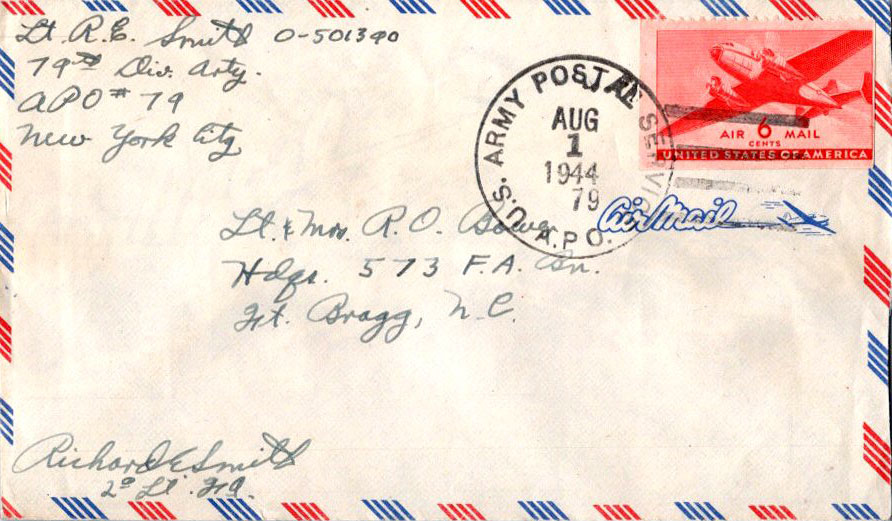 Lt. R.E. Smith O-501390
79th Div. Arty.
APO # 79
New York City
U.S. ARMY POSTAL SERVICE
AUG
1
1944
79
A.P.O.
AIR 6 MAIL
CENTS
UNITED STATES OF AMERICA
Air Mail
Lt. & Mrs. R. O. Bower
Hdqs. 573 F.A. Bn.
Ft. Bragg, N.C.
Richard E Smith
2o Lt. FA.